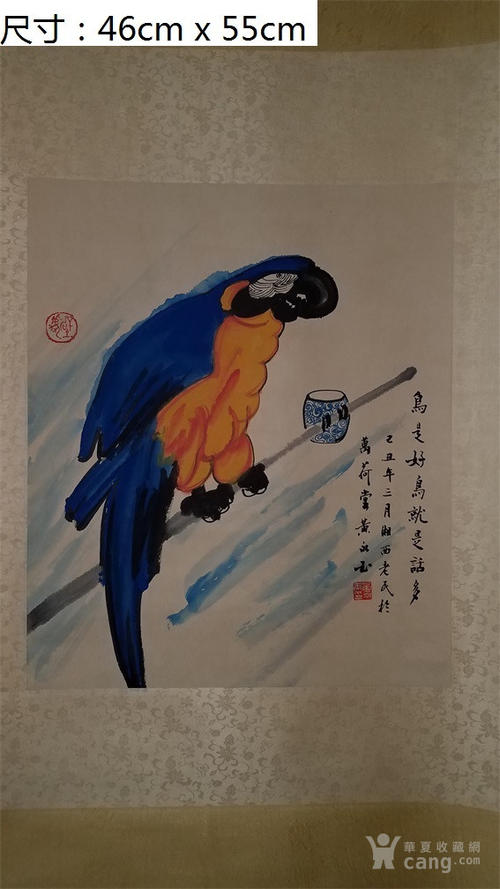 尺寸：46cm x 55cm
鳥是好鳥就是話多
己丑年三月湘西老民於
萬荷堂黃永玉
華夏收藏網
cang.com